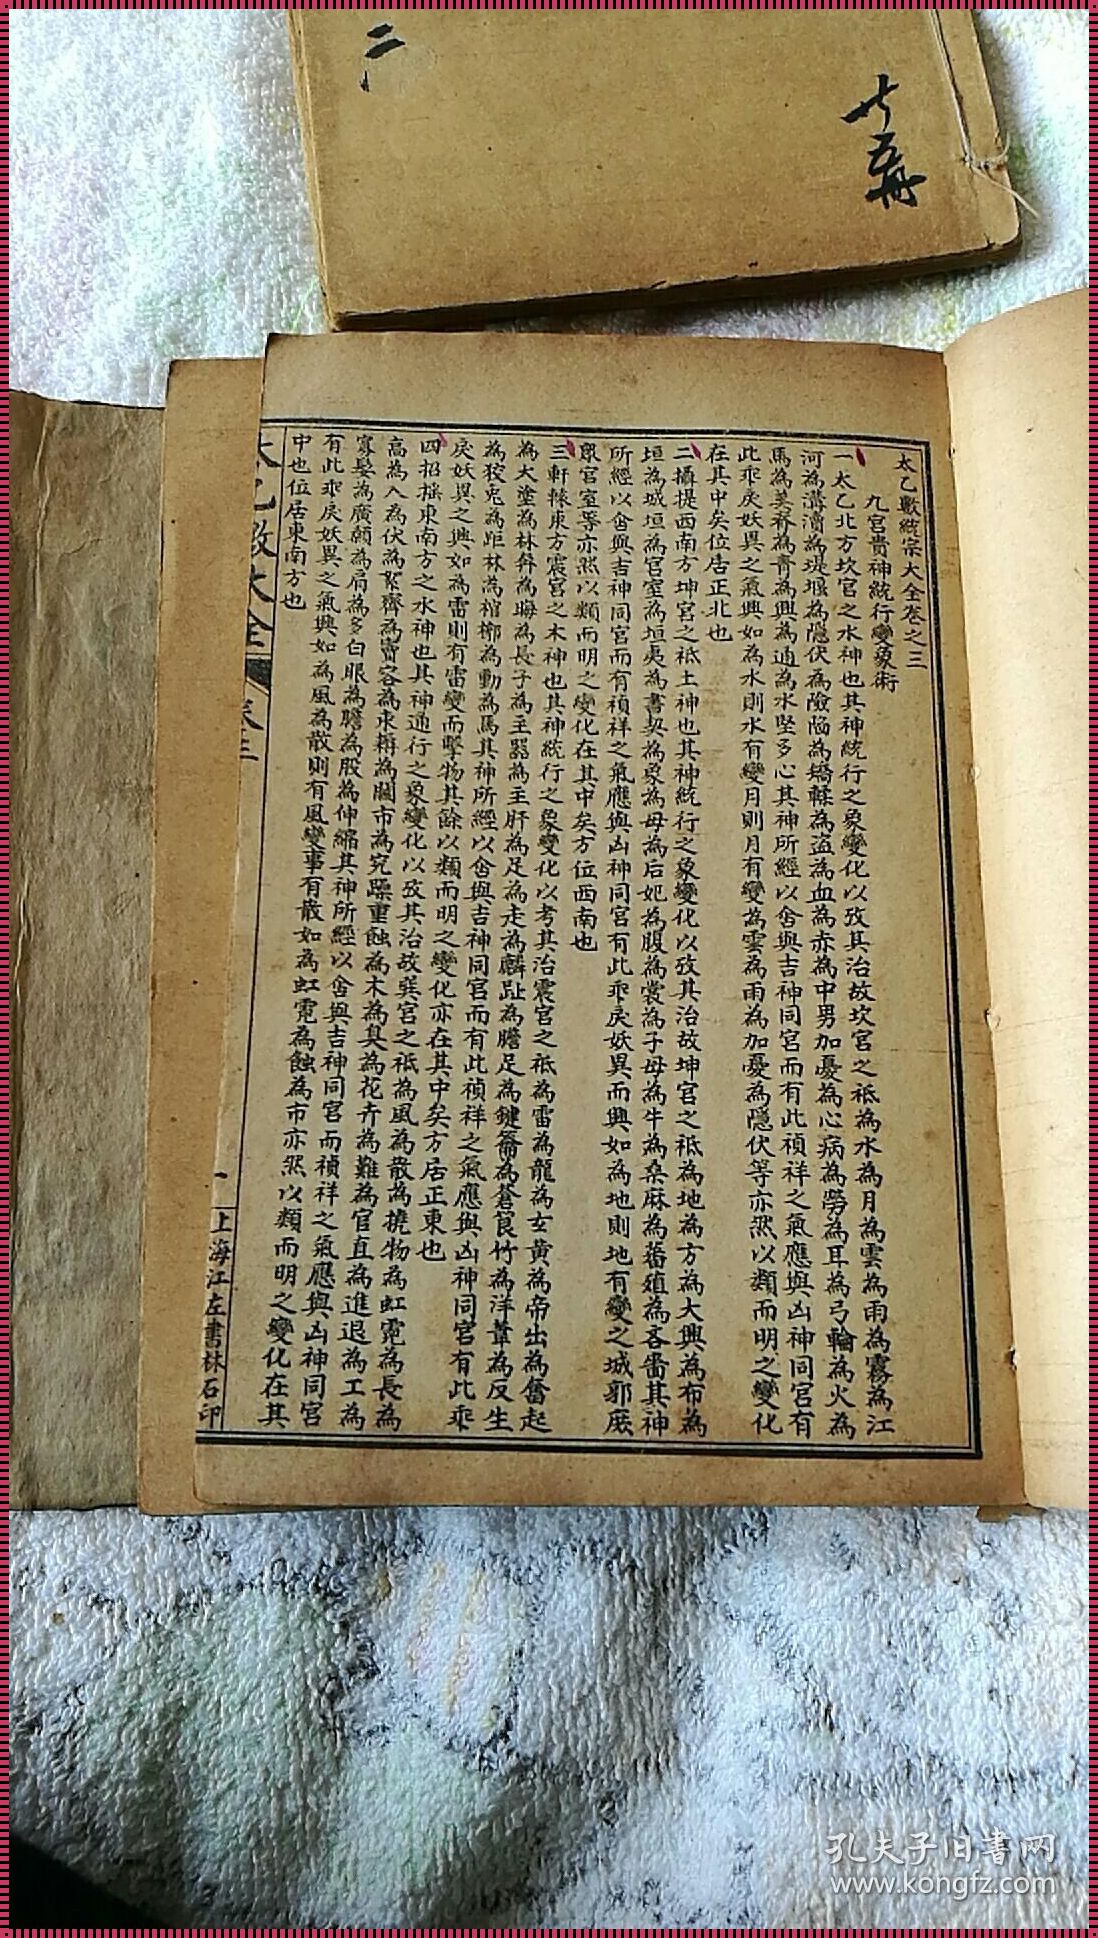 二
共五冊
太乙數統宗大全卷之三
九宮貴神統行變象術
一太乙北方坎宮之水神也其神統行之象變化以攷其治故坎宮之祇為水為月為雲為雨為霧為江
河為溝瀆為堤堰為隱伏為險陷為矯輮為盜為血為赤為中男加憂為心病為勞為耳為弓輪為火為
馬為美脊為青為興為通為水堅多心其神所經以舍與吉神同宮而有此禎祥之氣應與凶神同宮有
此乖戾妖異之氣興如為水則水有變月則月有變為雲為雨為加憂為隱伏等亦然以類而明之變化
在其中矣位居正北也
二攝提西南方坤宮之祇土神也其神統行之象變化以攷其治故坤宮之祇為地為方為大輿為布為
垣為城垣為宮室為垣夷為書契為象為母為后妃為腹為裳為子母為牛為桑麻為蕃殖為吝嗇其神
所經以舍與吉神同宮而有禎祥之氣應與凶神同宮有此乖戾妖異而興如為地則地有變之城郭
宮室等亦然以類而明之變化在其中矣方位西南也
三軒轅東方震宮之木神也其神統行之象變化以考其治震宮之祇為雷為龍為玄黃為帝出為奮起
為大塗為林為晦為長子為主器為主肝為足為走為麟趾為膽足為鍵籥為蒼筤竹為萑葦為反生
為狡兎為距林為棺槨為動為馬其神所經以舍與吉神同宮而有此禎祥之氣應與凶神同宮有此乖
戾妖異之興如為雷則有雷變而擊物其餘以類而明之變化亦在其中矣方居正東也
四招搖東南方之水神也其神通行之象變化以攷其治故巽宮之祇為風為散為撓物為虹霓為長為
高為入為伏為絜齊為容為求為闤市為究躁重蝕為木為臭為花卉為難為官直為進退為工為
寡髮為廣顙為肩為多白眼為膽為股為伸縮其神所經以舍與吉神同宮而禎祥之氣應與凶神同宮
有此乖戾妖異之氣興如為風為散則有風變事有散如為虹霓為蝕為市亦然以類而明之變化在其
中也位居東南方也
太乙數大全 卷三 一 上海江左書林石印
孔夫子旧書网
www.kongfz.com